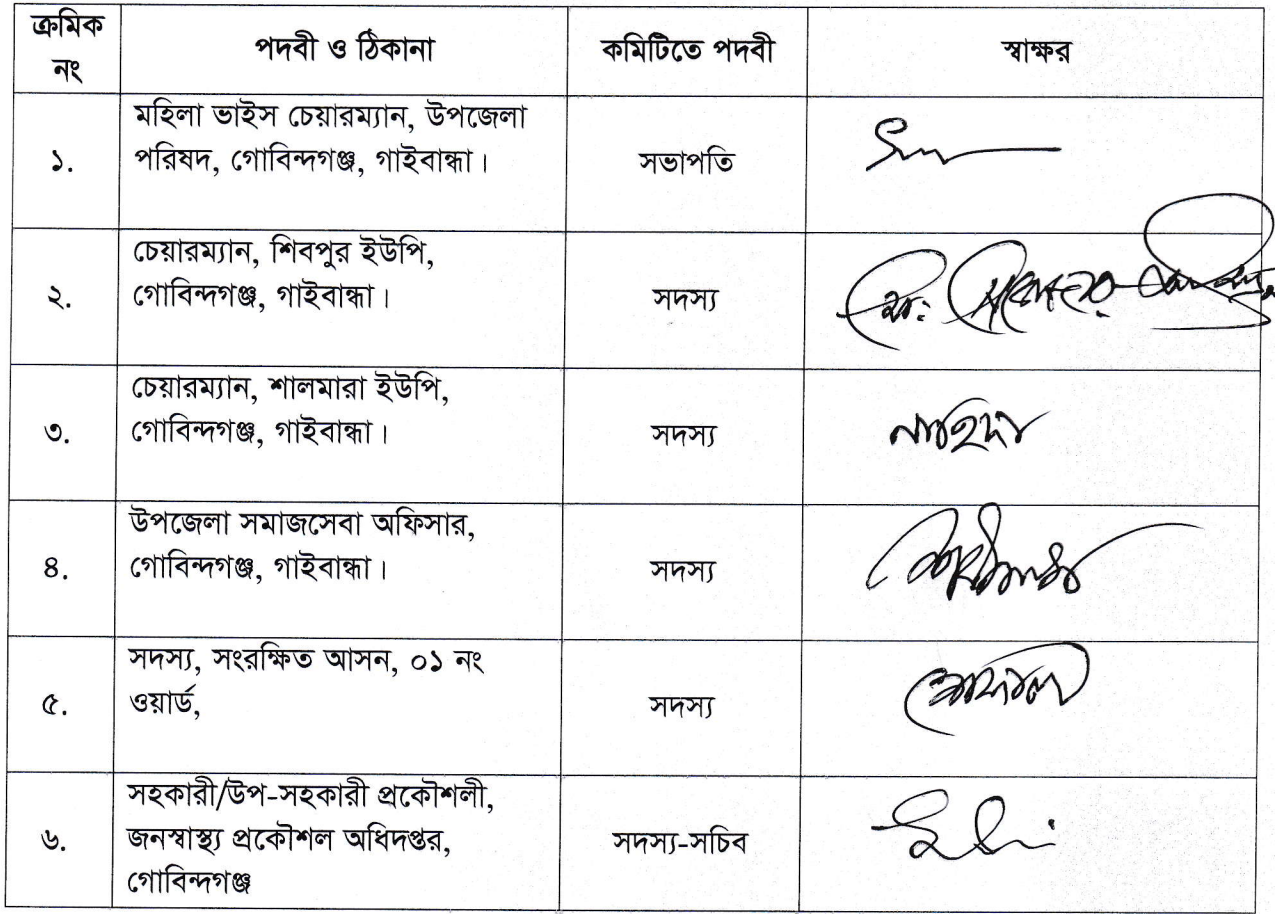 ক্রমিক
নং
পদবী ও ঠিকানা
কমিটিতে পদবী
স্বাক্ষর
১.
মহিলা ভাইস চেয়ারম্যান, উপজেলা
পরিষদ, গোবিন্দগঞ্জ, গাইবান্ধা।
সভাপতি
২.
চেয়ারম্যান, শিবপুর ইউপি,
গোবিন্দগঞ্জ, গাইবান্ধা।
সদস্য
৩.
চেয়ারম্যান, শালমারা ইউপি,
গোবিন্দগঞ্জ, গাইবান্ধা।
সদস্য
৪.
উপজেলা সমাজসেবা অফিসার,
গোবিন্দগঞ্জ, গাইবান্ধা।
সদস্য
৫.
সদস্য, সংরক্ষিত আসন, ০১ নং
ওয়ার্ড,
সদস্য
৬.
সহকারী/উপ-সহকারী প্রকৌশলী,
জনস্বাস্থ্য প্রকৌশল অধিদপ্তর,
গোবিন্দগঞ্জ
সদস্য-সচিব